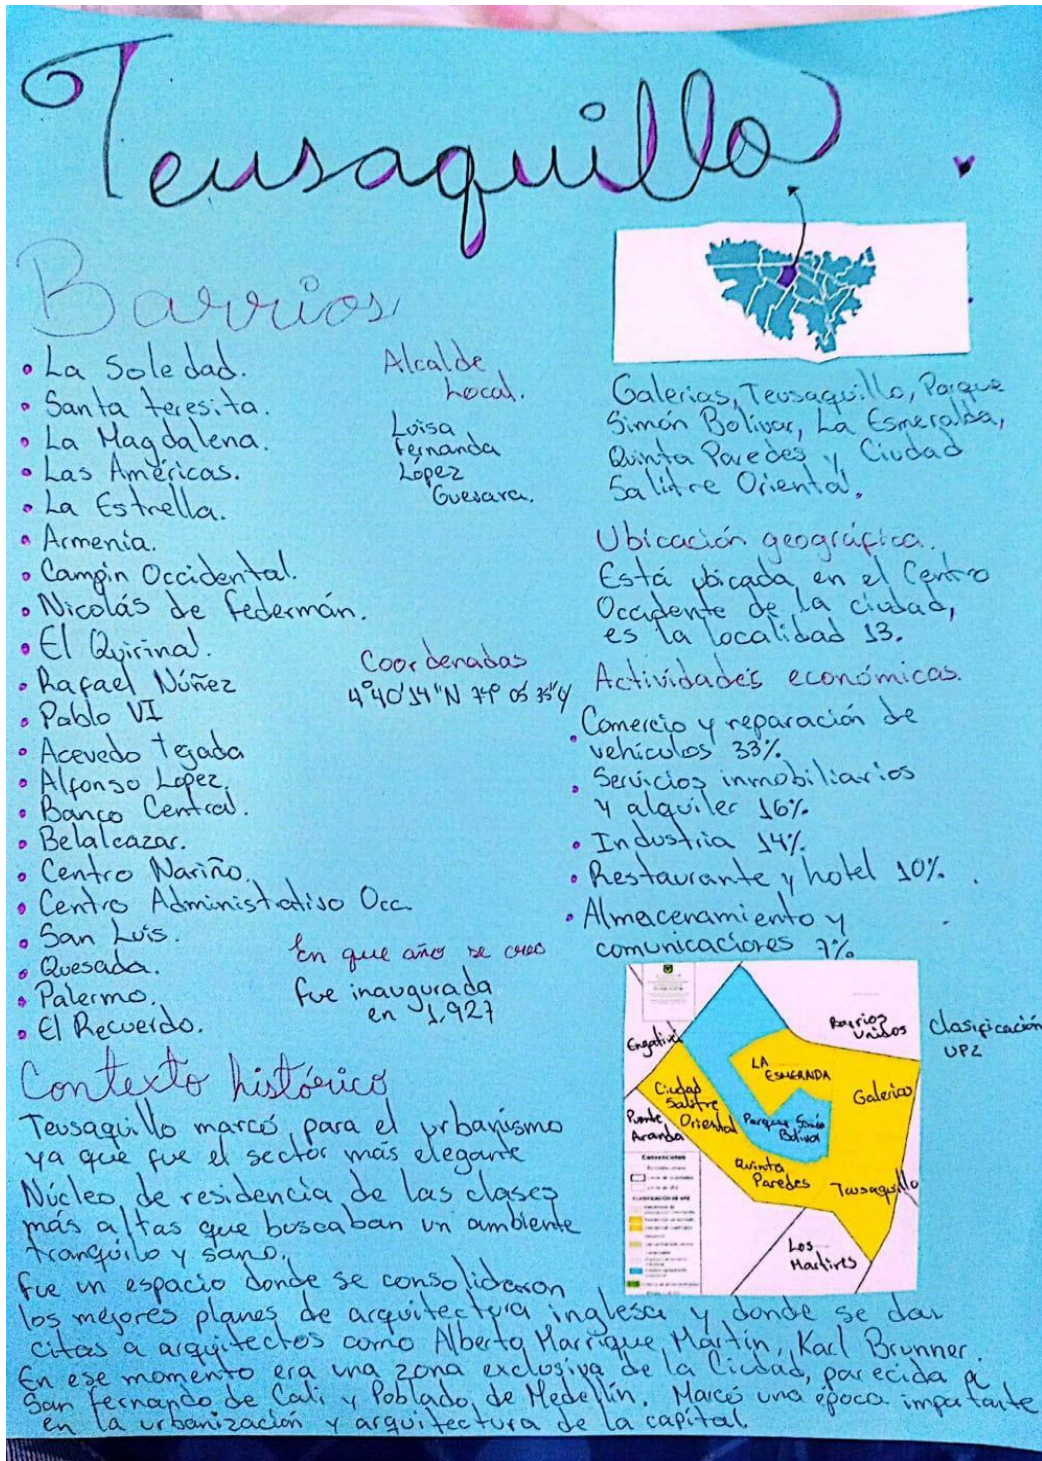 Teusaquillo
Barrios
• La Soledad.
• Santa teresita.
• La Magdalena.
• Las Américas.
• La Estrella.
• Armenia.
• Campin Occidental.
• Nicolás de federmán.
• El Quirinal.
• Rafael Núñez
• Pablo VI
• Acevedo tejada
• Alfonso Lopez.
• Banco Central.
• Belalcazar.
• Centro Nariño.
• Centro Administrativo Occ.
• San Luis.
• Quesada.
• Palermo.
• El Recuerdo.
Alcalde
Local.
Luisa
Fernanda
López
Guevara.
Coordenadas
4°40'14"N 74° 05'
En que año se creo
fue inaugurada
en 1.927
Galerias, Teusaquillo, Parque
Simón Bolivar, La Esmeralda,
Quinta Paredes y Ciudad
Salitre Oriental.
Ubicación geográfica.
Está ubicada en el Centro
Occidente de la ciudad,
es la localidad 13.
Actividades económicas.
• Comercio y reparación de
vehículos 33%
• Servicios inmobiliarios
y alquiler 16%
• Industria 14%
• Restaurante y hotel 10%.
• Almacenamiento y
comunicaciones 7%
Engativá
Barrios
Unidos
Clasificación
UPZ
LA
ESMERALDA
Galerias
Ciudad
Salitre
Oriental
Puente
Aranda
Parque Simón
Bolivar
Quinta
Paredes
Teusaquillo
Los
Martires
Convenciones
Contexto histórico
Teusaquillo marcó para el urbanismo
ya que fue el sector más elegante
Núcleo de residencia de las clases
más altas que buscaban un ambiente
tranquilo y sano.
fue un espacio donde se consolidaron
los mejores planes de arquitectura inglesa y donde se dan
citas a arquitectos como Alberto Manrique Martín, Karl Brunner.
En ese momento era una zona exclusiva de la Ciudad, parecida a
San fernando de Cali y Poblado de Medellín. Marcó una época importante
en la urbanización y arquitectura de la capital.